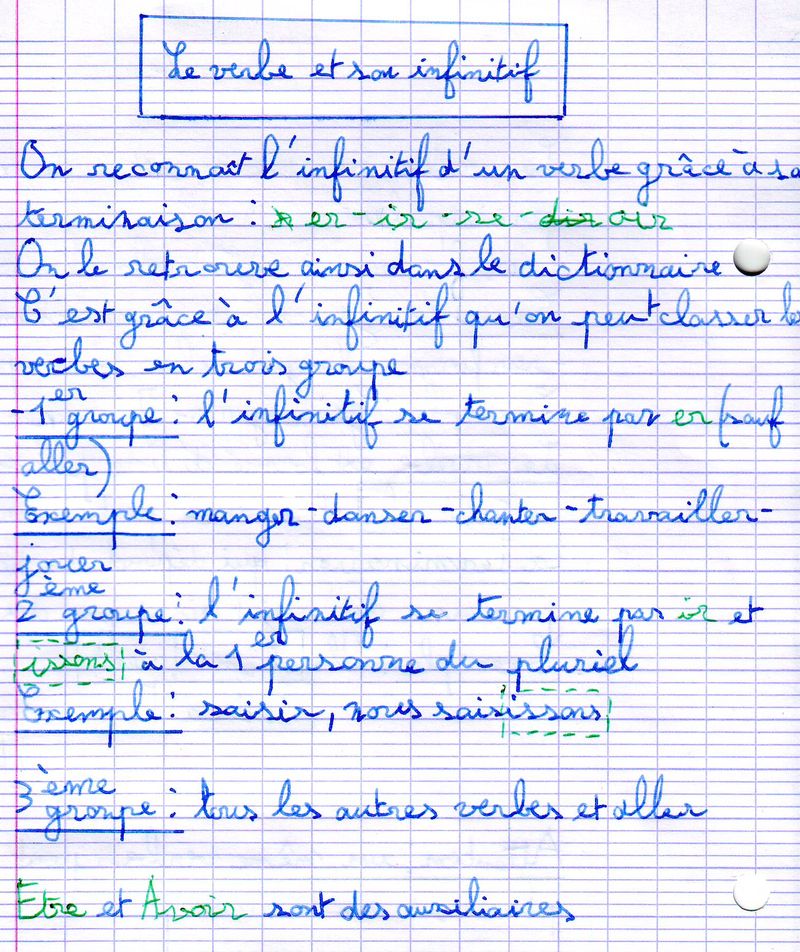 Le verbe et son infinitif
On reconnaît l'infinitif d'un verbe grâce à sa
terminaison : er - ir - re - oir
On le retrouve ainsi dans le dictionnaire
C'est grâce à l'infinitif qu'on peut classer les
verbes en trois groupe
- 1er groupe : l'infinitif se termine par er (sauf
aller)
Exemple : manger - danser - chanter - travailler -
jouer
2ème groupe : l'infinitif se termine par ir et
issons à la 1er personne du pluriel
Exemple : saisir, nous saisissons
3ème groupe : tous les autres verbes et aller
Etre et Avoir sont des auxiliaires